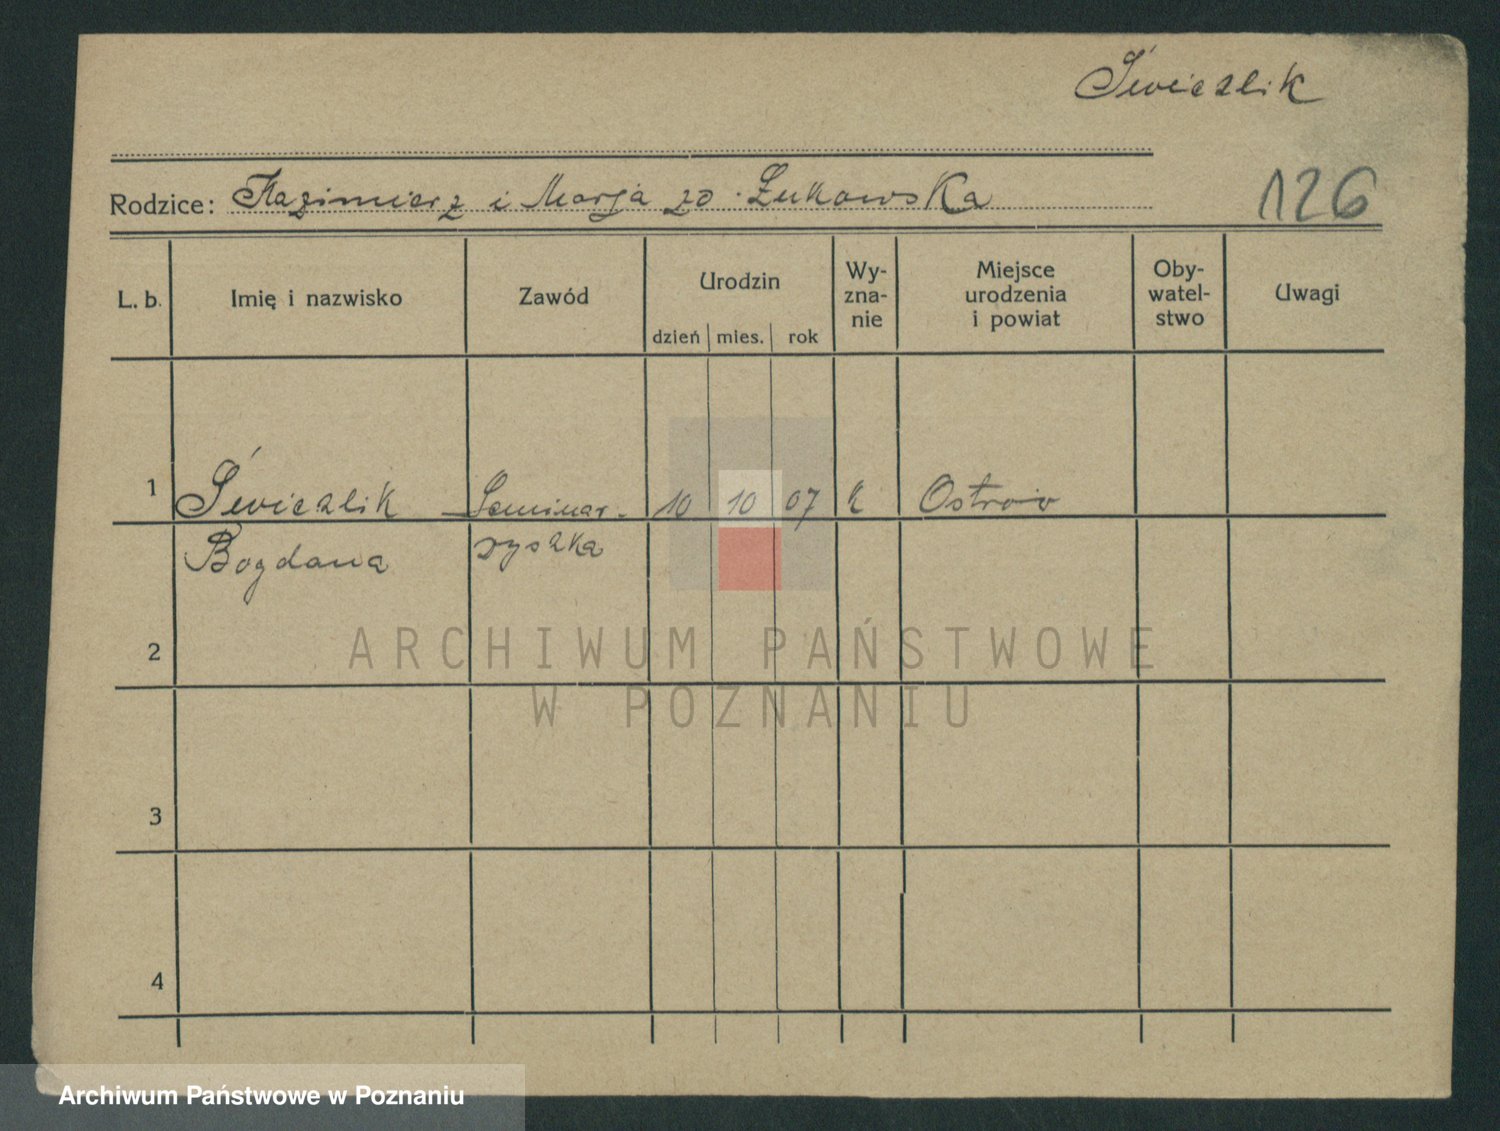 Świeżlik
Rodzice: Kazimierz i Marja zd. Łukowska
126
L. b. Imię i nazwisko Zawód Urodzin dzień mies. rok Wyznanie Miejsce urodzenia i powiat Obywatelstwo Uwagi
1 Świeżlik Seminar- 10 10 07 k Ostrów
Bogdana zyszka
2
3
4
ARCHIWUM PAŃSTWOWE
W POZNANIU
Archiwum Państwowe w Poznaniu